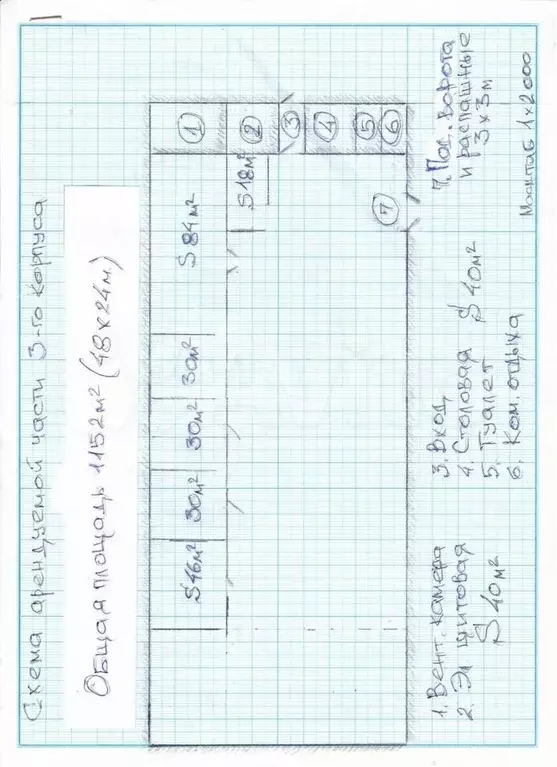 Схема арендуемой части 3-го корпуса
Общая площадь 1152м² (48х24м.)
S46м²
30м²
30м²
30м²
S84м²
S18м²
1
2
3
4
5
6
7
1. Вент. камера
2. Эл щитовая
S 40м²
3. Вход
4. Столовая
5. Туалет S 40м²
6. Ком. отдыха
7. Под. ворота
и распашные
3х3м
Масштаб 1х2000